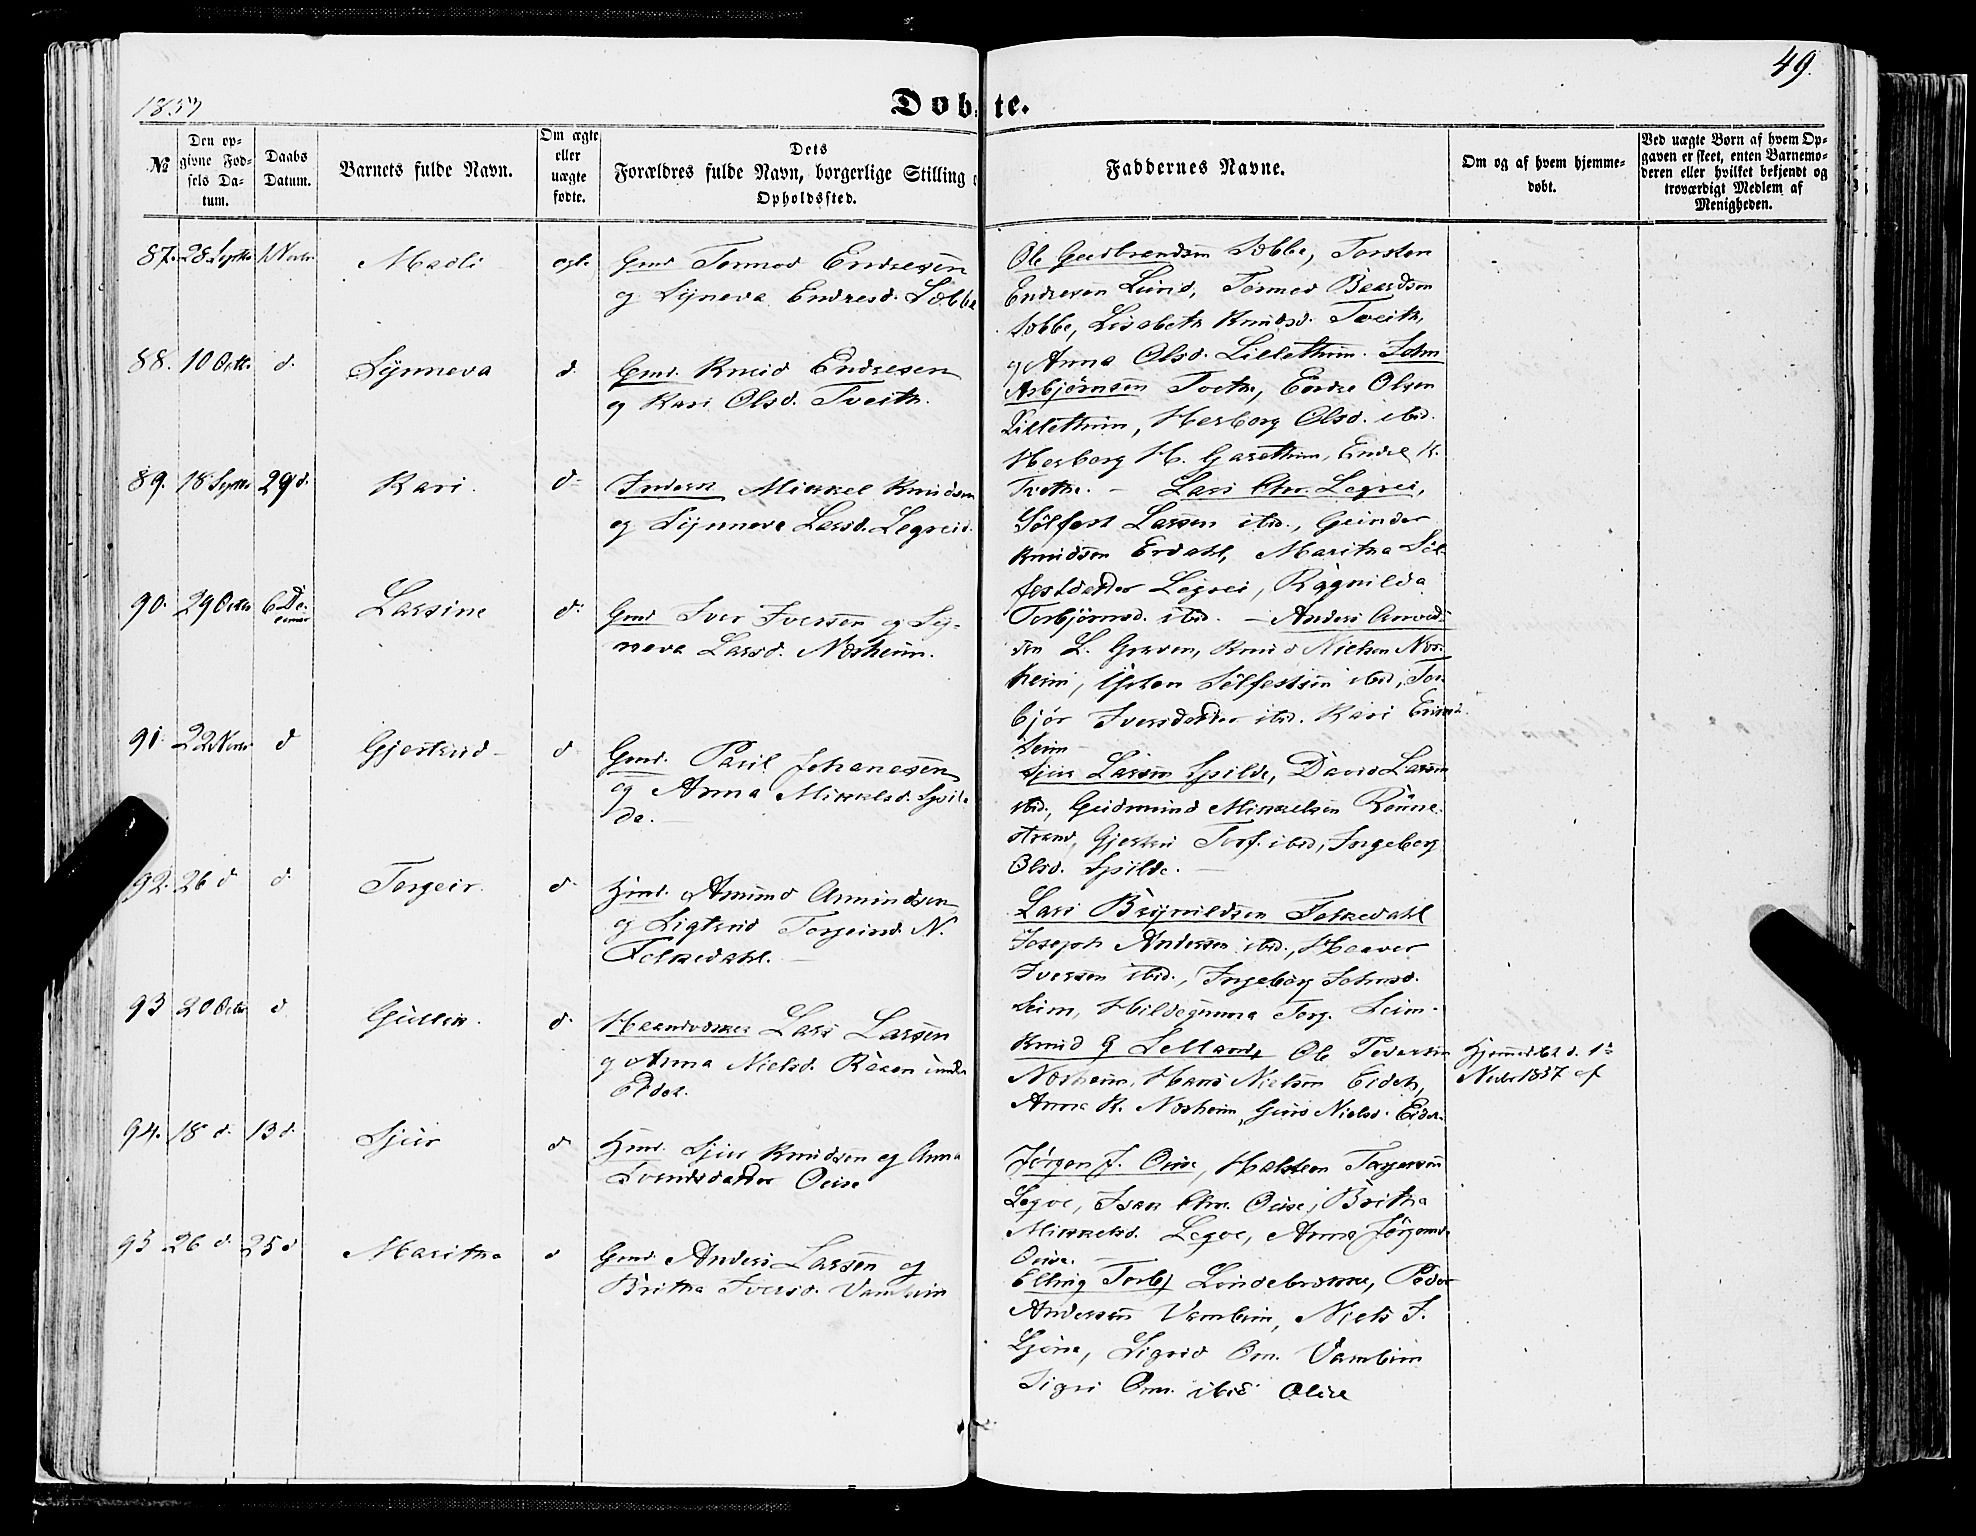 49.
1857
Døbte.
№
Den opgivne Fødsels Datum.
Daabs Datum.
Barnets fulde Navn.
Om ægte eller uægte fødte.
Dets Forældres fulde Navn, borgerlige Stilling
Opholdssted.
Faddernes Navne.
Om og af hvem hjemmedøbt.
Ved uægte Børn af hvem Opgaven er skeet, enten Barnemoderen eller hvilket bekjendt og troværdigt Medlem af Menigheden.
87. 28 Septbr 1 Novbr. Madli ægte Gmd Tormod Endresen
og Synneva Endresd. Sæbbe
Ole Gudbrandsen Sæbbe, Torsten
Endresen Lund, Tormod Baardsen
Sæbbe, Lisabeth Knudsd. Tveith,
og Anna Olsd. Lillethun.
88. 10 Octbr. d. Synneva d Gmd. Knud Endresen
og Kari Olsd. Tveith.
John
Asbjørnsen Tveth, Endre Olsen
Lillethun, Herborg Olsd. ibid.
Herborg H. Garethun, Endre K.
Tvethe. –
89. 18 Septbr 29 d. Kari. d. Inderst Mikkel Knudsen
og Synneva Larsd. Legreid.
Lars Chr. Legrei,
Sølfest Larsen ibid.,
Knudsen Erdahl, Maritha Søl
festdatter Legrei, Ragnilda
Torbjørnsd. ibid. –
90. 29 Octbr 6 De-
cember Larsine d. Gmd Iver Iversen og Sy-
neva Larsd. Næsheim.
Anders
L. Graven, Knud Nielsen Næs
heim, Sølfestsen ibid, Tor
bjør Iversdatter ibid. Kari
Seim –
91. 22 Novbr d Gjertrud – d Gmd. Paul Johanesen
og Anna Mikkelsd. Spil-
de. –
Sjur Larsen Spilde, David Larsen
ibid., Gudmund Mikkelsen Rønne-
strand, Gjertru Torf. ibid, Ingeborg
Olsd. Spilde. –
92. 26 d d. Torgeir. d. Hmd. Amund Amundsen
og Sigtrud Torgeirsd. N.
Folkedahl. –
Lars Brynildsen Folkedahl
Joseph Andersen ibid., Haaver
Iversen ibid., Ingeborg Johnsd.
Seim, Hildegunna Torg. Seim.
93 20 Octbr. d Gullik. d. Haandværker Lars Larsen
og Anna Nielsd. Røaen under
Eidet.
Knud G Selland, Ole Pedersen
Næsheim, Hans Nielsen Eidet,
Anna K. Næsheim, Guro Nielsd. Eidet.
Hjemmedøbt d. 1ste
Novbr 1857 af
94. 18 d. 13 d. Sjur d Hmd. Sjur Knudsen og Anna
Svendsdatter Ouse
Jørgen J. Ouse, Halsten Torgersen
Legve, Isak Chr. Ouse, Britha
Mikkelsd. Legve, Anna Jørgensd.
Ouse.
95 26 d 25 d Maritha d Gmd. Anders Larsen og
Britha Iversd. Vambeim
Elling Torbj Lindebrække, Peder
Andersen Vambeim, Niels I.
Ljøne, Sigrid Om. Vambeim
Sigri Om. ibid